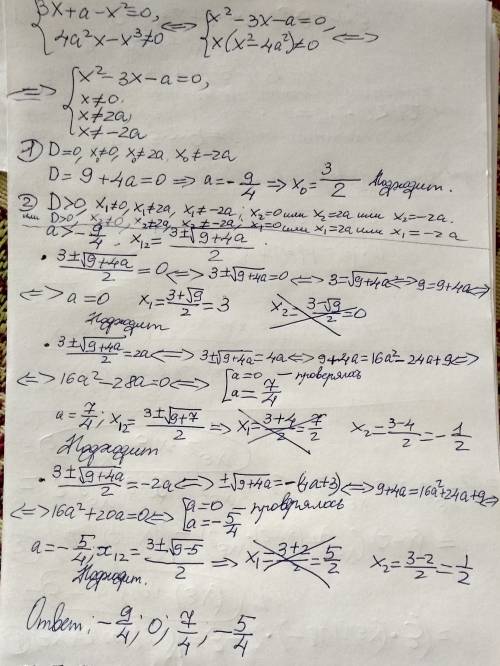 { 3x+a-x²=0, 4a²x-x³≠0 <=> { x²-3x-a=0, x(x²-4a²)≠0 <=>
<=> { x²-3x-a=0, x≠0, x≠2a, x≠-2a
① D=0, x₀≠0, x₀≠2a, x₀≠-2a
D=9+4a=0 => a=-9/4 => x₀=3/2 Подходит.
② D>0, x₁≠0, x₁≠2a, x₁≠-2a, x₂=0 или x₂=2a или x₂=-2a.
или D>0, x₂≠0, x₂≠2a, x₂≠-2a, x₁=0 или x₁=2a или x₁=-2a
a>-9/4, x₁₂=(3±√(9+4a))/2.
• (3±√(9+4a))/2=0 <=> 3±√(9+4a)=0 <=> 3=√(9+4a) <=> 9=9+4a <=>
<=> a=0 x₁=(3+√9)/2=3 x₂=(3-√9)/2=0
Подходит
• (3±√(9+4a))/2=2a <=> 3±√(9+4a)=4a <=> 9+4a=16a²-24a+9 <=>
<=> 16a²-28a=0 <=> [ a=0 - проверялось a=7/4
a=7/4; x₁₂=(3±√(9+7))/2 => x₁=(3+4)/2=7/2 x₂=(3-4)/2=-1/2
Подходит
• (3±√(9+4a))/2=-2a <=> ±√(9+4a)=-(4a+3) <=> 9+4a=16a²+24a+9 <=>
<=> 16a²+20a=0 <=> [ a=0 - проверялось a=-5/4
a=-5/4; x₁₂=(3±√(9-5))/2 => x₁=(3+2)/2=5/2 x₂=(3-2)/2=1/2
Подходит.
Ответ: -9/4; 0; 7/4; -5/4